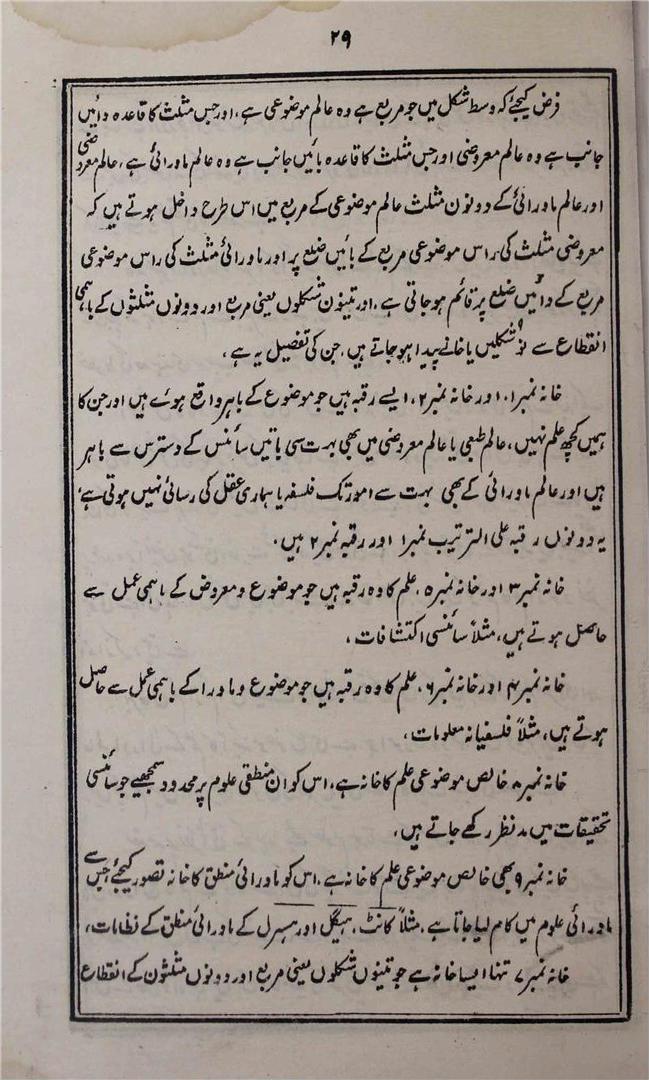 ۲۹
فرض کیجئے کہ وسط شکل میں جو مربع ہے وہ عالم موضوعی ہے، اور جس مثلث کا قاعدہ دائیں
جانب ہے وہ عالم معروضی اور جس مثلث کا قاعدہ بائیں جانب ہے وہ عالم ماورائی ہے، عالم معروضی
اور عالم ماورائی کے دونون مثلث عالم موضوعی کے مربع میں اس طرح داخل ہوتے ہیں کہ
معروضی مثلث کی راس موضوعی مربع کے بائیں ضلع پر اور ماورائی مثلث کی راس موضوعی
مربع کے دائیں ضلع پر قائم ہو جاتی ہے، اور تینوں شکلوں یعنی مربع اور دونوں مثلثوں کے باہمی
انقطاع سے نو شکلیں یا خانے پیدا ہو جاتے ہیں، جن کی تفصیل یہ ہے،
خانہ نمبر ۱، اور خانہ نمبر ۲، ایسے رقبہ ہیں جو موضوع کے باہر واقع ہوئے ہیں اور جن کا
ہمیں کچھ علم نہیں، عالم طبعی یا عالم معروضی میں بھی بہت سی باتیں سائنس کے دسترس سے باہر
ہیں اور عالم ماورائی کے بھی بہت سے امور تک فلسفہ یا ہماری عقل کی رسائی نہیں ہوتی ہے،
یہ دونوں رقبہ علی الترتیب نمبر ۱ اور رقبہ نمبر ۲ ہیں.
خانہ نمبر ۳ اور خانہ نمبر ۵، علم کا وہ رقبہ ہیں جو موضوع و معروض کے باہمی عمل سے
حاصل ہوتے ہیں، مثلاً سائنسی اکتشافات،
خانہ نمبر ۴ اور خانہ نمبر ۶، علم کا وہ رقبہ ہیں جو موضوع و ماورا کے باہمی عمل سے حاصل
ہوتے ہیں، مثلاً فلسفیانہ معلومات،
خانہ نمبر ۸ خالص موضوعی علم کا خانہ ہے، اس کو ان منطقی علوم پر محدود سمجھیے جو سائنسی
تحقیقات میں مدنظر رکھے جاتے ہیں،
خانہ نمبر ۹ بھی خالص موضوعی علم کا خانہ ہے، اس کو ماورائی منطق کا خانہ تصور کیجئے جس سے
ماورائی علوم میں کام لیا جاتا ہے، مثلاً کانٹ، ہیگل اور ہسرل کے ماورائی منطق کے نظامات،
خانہ نمبر ۷ تنہا ایسا خانہ ہے جو تینوں شکلوں یعنی مربع اور دونوں مثلثون کے انقطاع